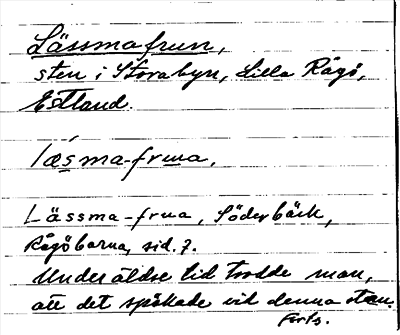 Lässmafrun,
sten i Storabyn, Lilla Rågö,
Estland.
læsma-frua.
Lässma-frua, Söderbäck,
Rågöborna, sid. 7.
Under äldre tid trodde man,
att det spökade vid denna sten.
forts.